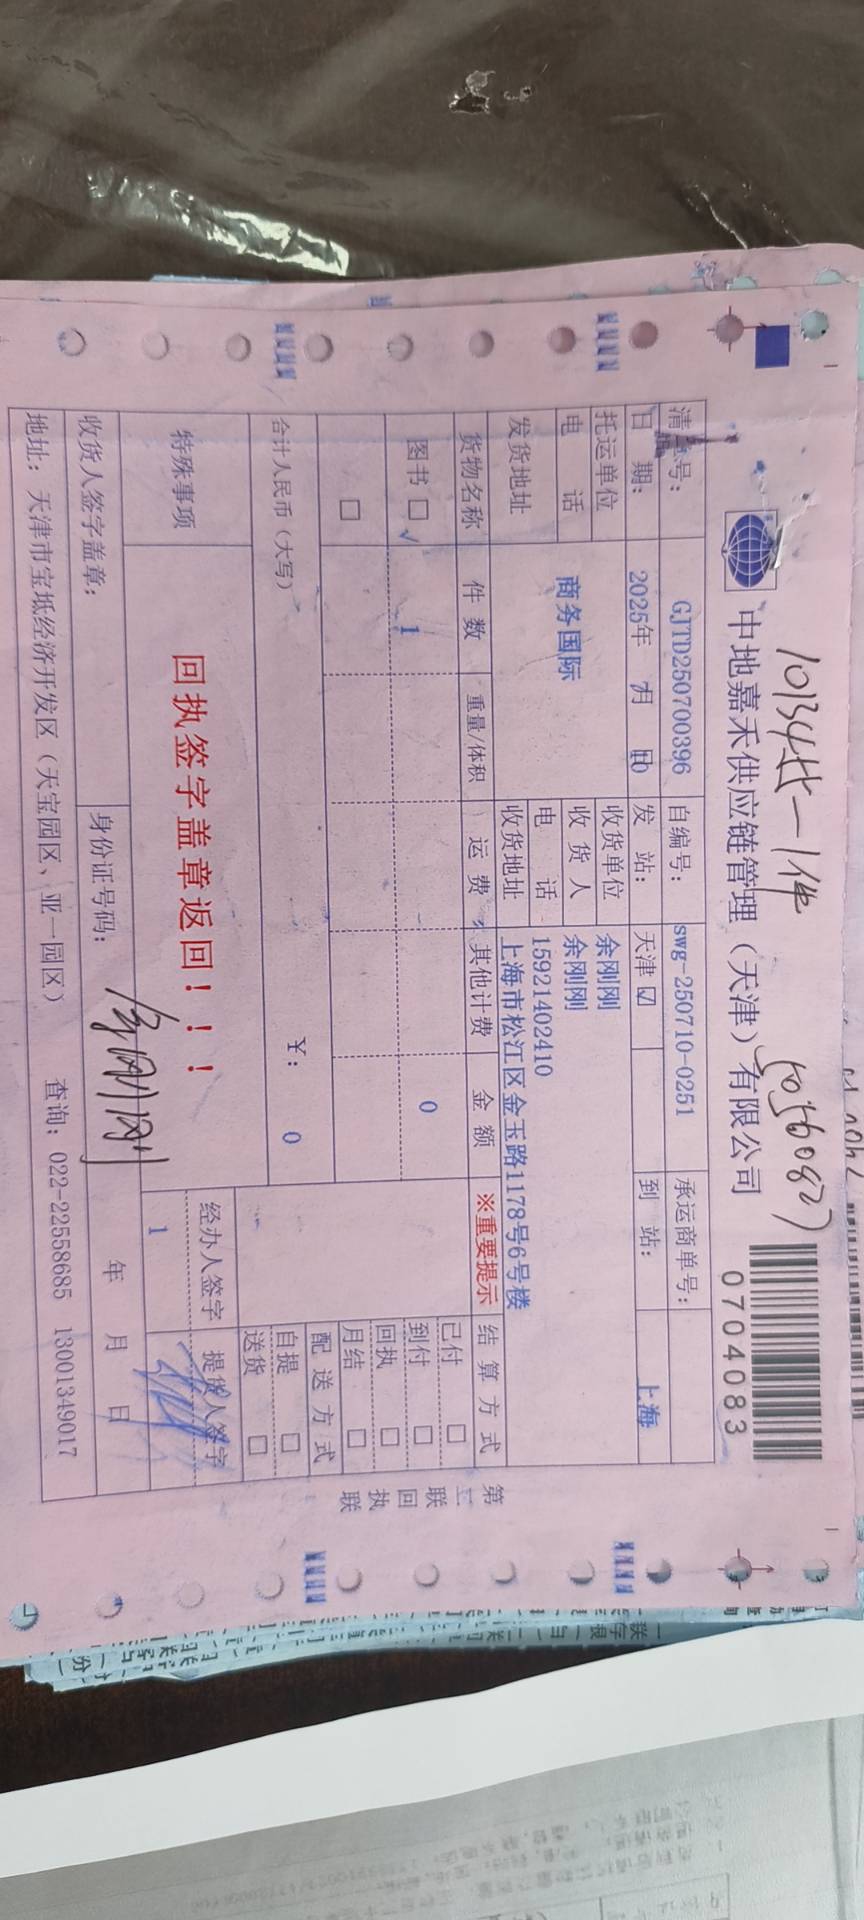 中地嘉禾供应链管理（天津）有限公司
0704083
清单号： GJTD250700396 自编号： swg-250710-0251 承运商单号：
日 期： 2025年 7月 10 发 站： 天津 ☑ 到 站： 上海
托运单位 商务国际 收货单位 余刚刚
收 货 人 余刚刚
电 话 电 话 15921402410
发货地址 收货地址 上海市松江区金玉路1178号6号楼
货物名称 件 数 重量/体积 运 费 其他计费 金 额 ※重要提示 结 算 方 式
图书 □ √ 1 0 已付 □
到付 □
□ 回执 □
月结 □
合计人民币（大写） ￥： 0 配 送 方 式
自提 □
送货 □
特殊事项 回执签字盖章返回！！！ 经办人签字 提货人签字
1
收货人签字盖章： 身份证号码： 余刚刚 年 月 日
地址：天津市宝坻经济开发区（天宝园区、亚一园区） 查询：022-22558685 13001349017
第三联回执联